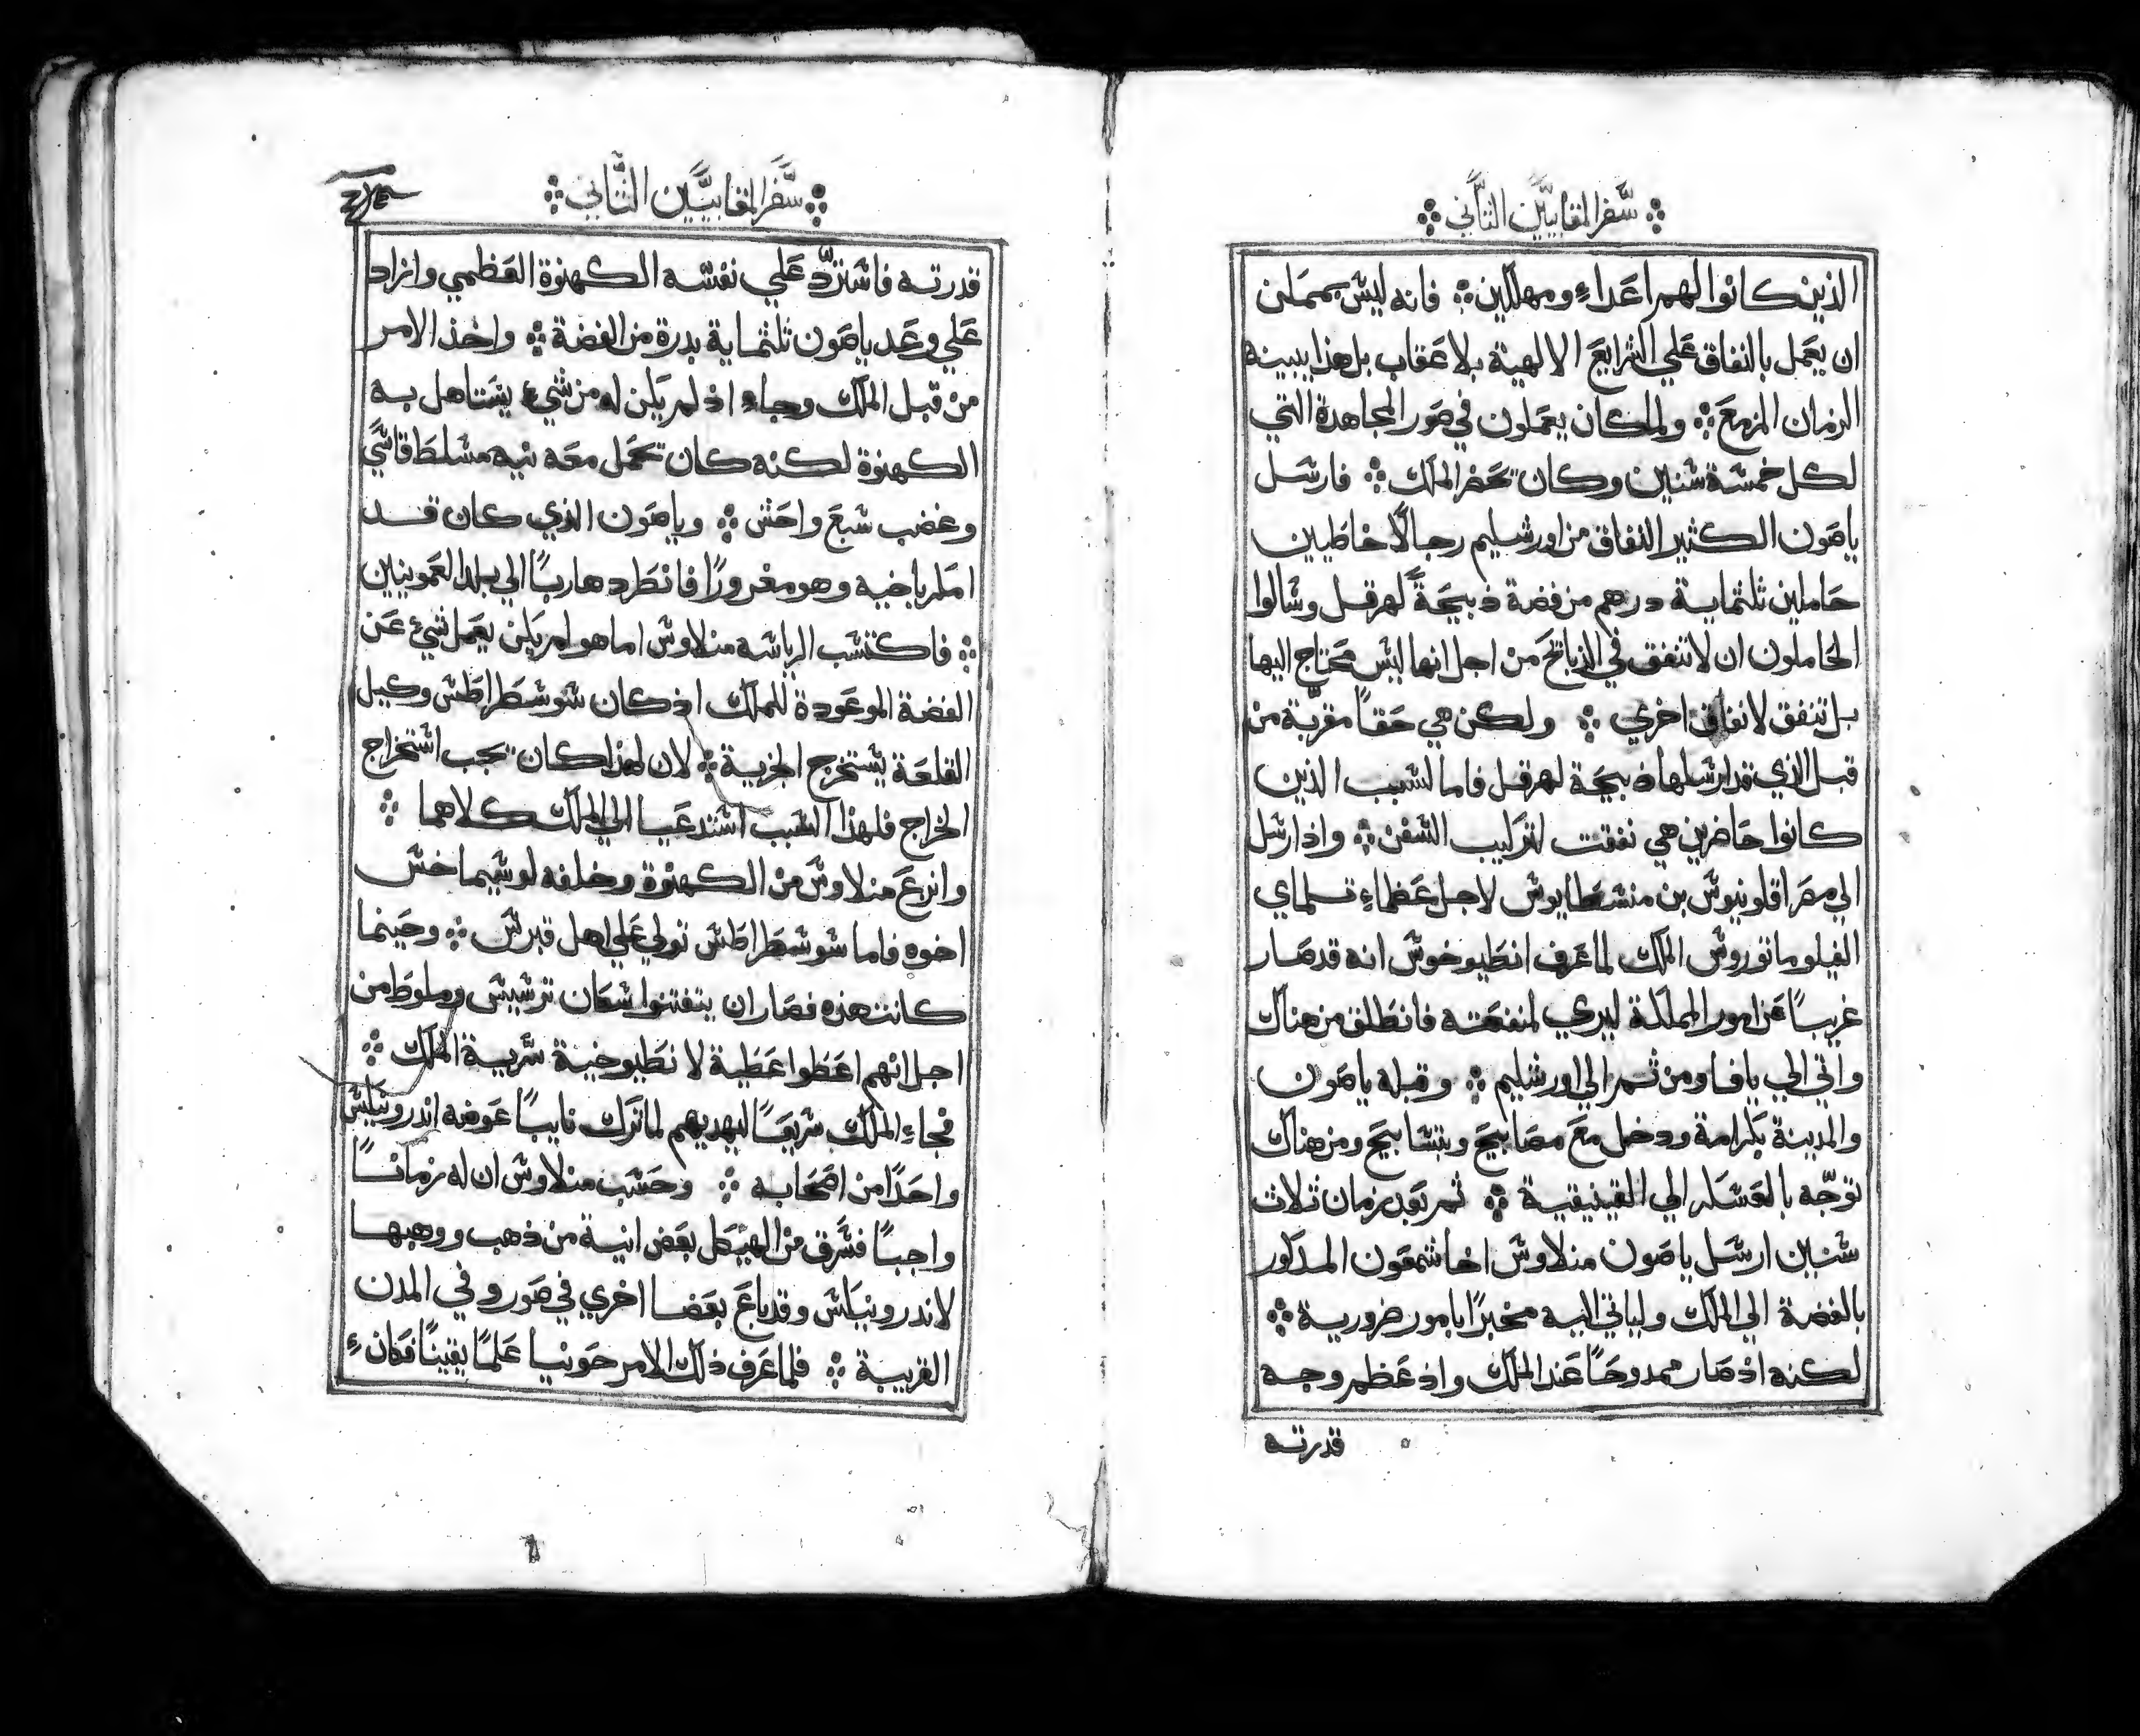 سفر المقابيين الثاني
الذين كانوا لهم اعداءٍ ومهلكين فانه ليس بممكن
ان يعمل بالنفاق علي الشرايع الالهية بلا عقاب بل هذا يبينه
الزمان المزمع ولما كان يعملون في صور المجاهدة التي
لكل خمسة سنين وكان يحضر الملك فارسل
ياصون الكثير النفاق من اورشليم رجالًا خاطيين
حاملين ثلثماية درهم من فضة ذبيحةً لهرقل وسالوا
الحاملون ان لا تنفق في الذبايح من اجل انها ليس محتاج اليها
بل تنفق لانفاق اخري ولكن هي حقاً مقربة من
قبل الذي قد ارسلها ذبيحة لهرقل فاما لسبب الذين
كانوا حاضرين هي نفقت لتركيب السفن واذ ارسل
الي مصر اقلونيوس بن منسطايوس لاجل عظماءِ تلماي
الفيلوماتوروس الملك لما عرف انطيوخوس انه قد صار
غريباً عن امور المملكة ليري لمنفعته فانطلق من هناك
واتي الي يافا ومن ثم الي اورشليم وقبله ياصون
والمدينة بكرامة ودخل مع مصابيح وبتسابيح ومن هناك
توجّه بالعسكر الي الفينيقية ثم بعد زمان ثلاث
سنين ارسل ياصون منلاوس اخا شمعون المذكور
بالفضة الي الملك ولياتي اليه مخبرًا بامور ضرورية
لكنه اذ صار ممدوحًا عند الملك واذ عظم وجه
قدرته
سفر المقابيين الثاني
قدرته فاستردّ علي نفسه الكهنوة العظمي وازاد
علي وعد ياصون ثلثماية بدرة من الفضة واخذ الامر
من قبل الملك وجاءِ اذ لم يكن له من شيءٍ يستاهل به
الكهنوة لكنه كان يحمل معه نيه مسلط قاسي
وغضب سبع واحش وياصون الذي كان قد
امكر باخيه وهو مغرورًا فانطرد هاربًا الي بلد العمونيين
فاكتسب الرياسه منلاوس اما هو لم يكن يعمل شيء عن
الفضة الموعودة للملك اذ كان سوسطراطس وكيل
القلعة يستخرج الجزية لان لهذا كان يجب استخراج
الخراج فلهذا السبب استدعيا الي الملك كلاهما
وانزع منلاوس من الكهنوة وخلفه لوسيماخس
اخوه فاما سوسطراطس تولي علي اهل قبرس وحينما
كانت هذه فصار ان يتفتنوا سكان ترسيس وملوط من
اجل انهم اعطوا عطية لانطيوخية سرّية الملك
فجاءِ الملك سريعًا ليهديهم لما ترك نايبًا عوضه اندرونيكس
واحدًا من اصحابه وحسب منلاوس ان له زمانًا
واجبًا فسرق من الهيكل بعض انية من ذهب ووهبها
لاندرونيكس وقد باع بعضا اخري في صور وفي المدن
القريبة فلما عرف ذلك الامر حونيا علمًا يقينًا فكان